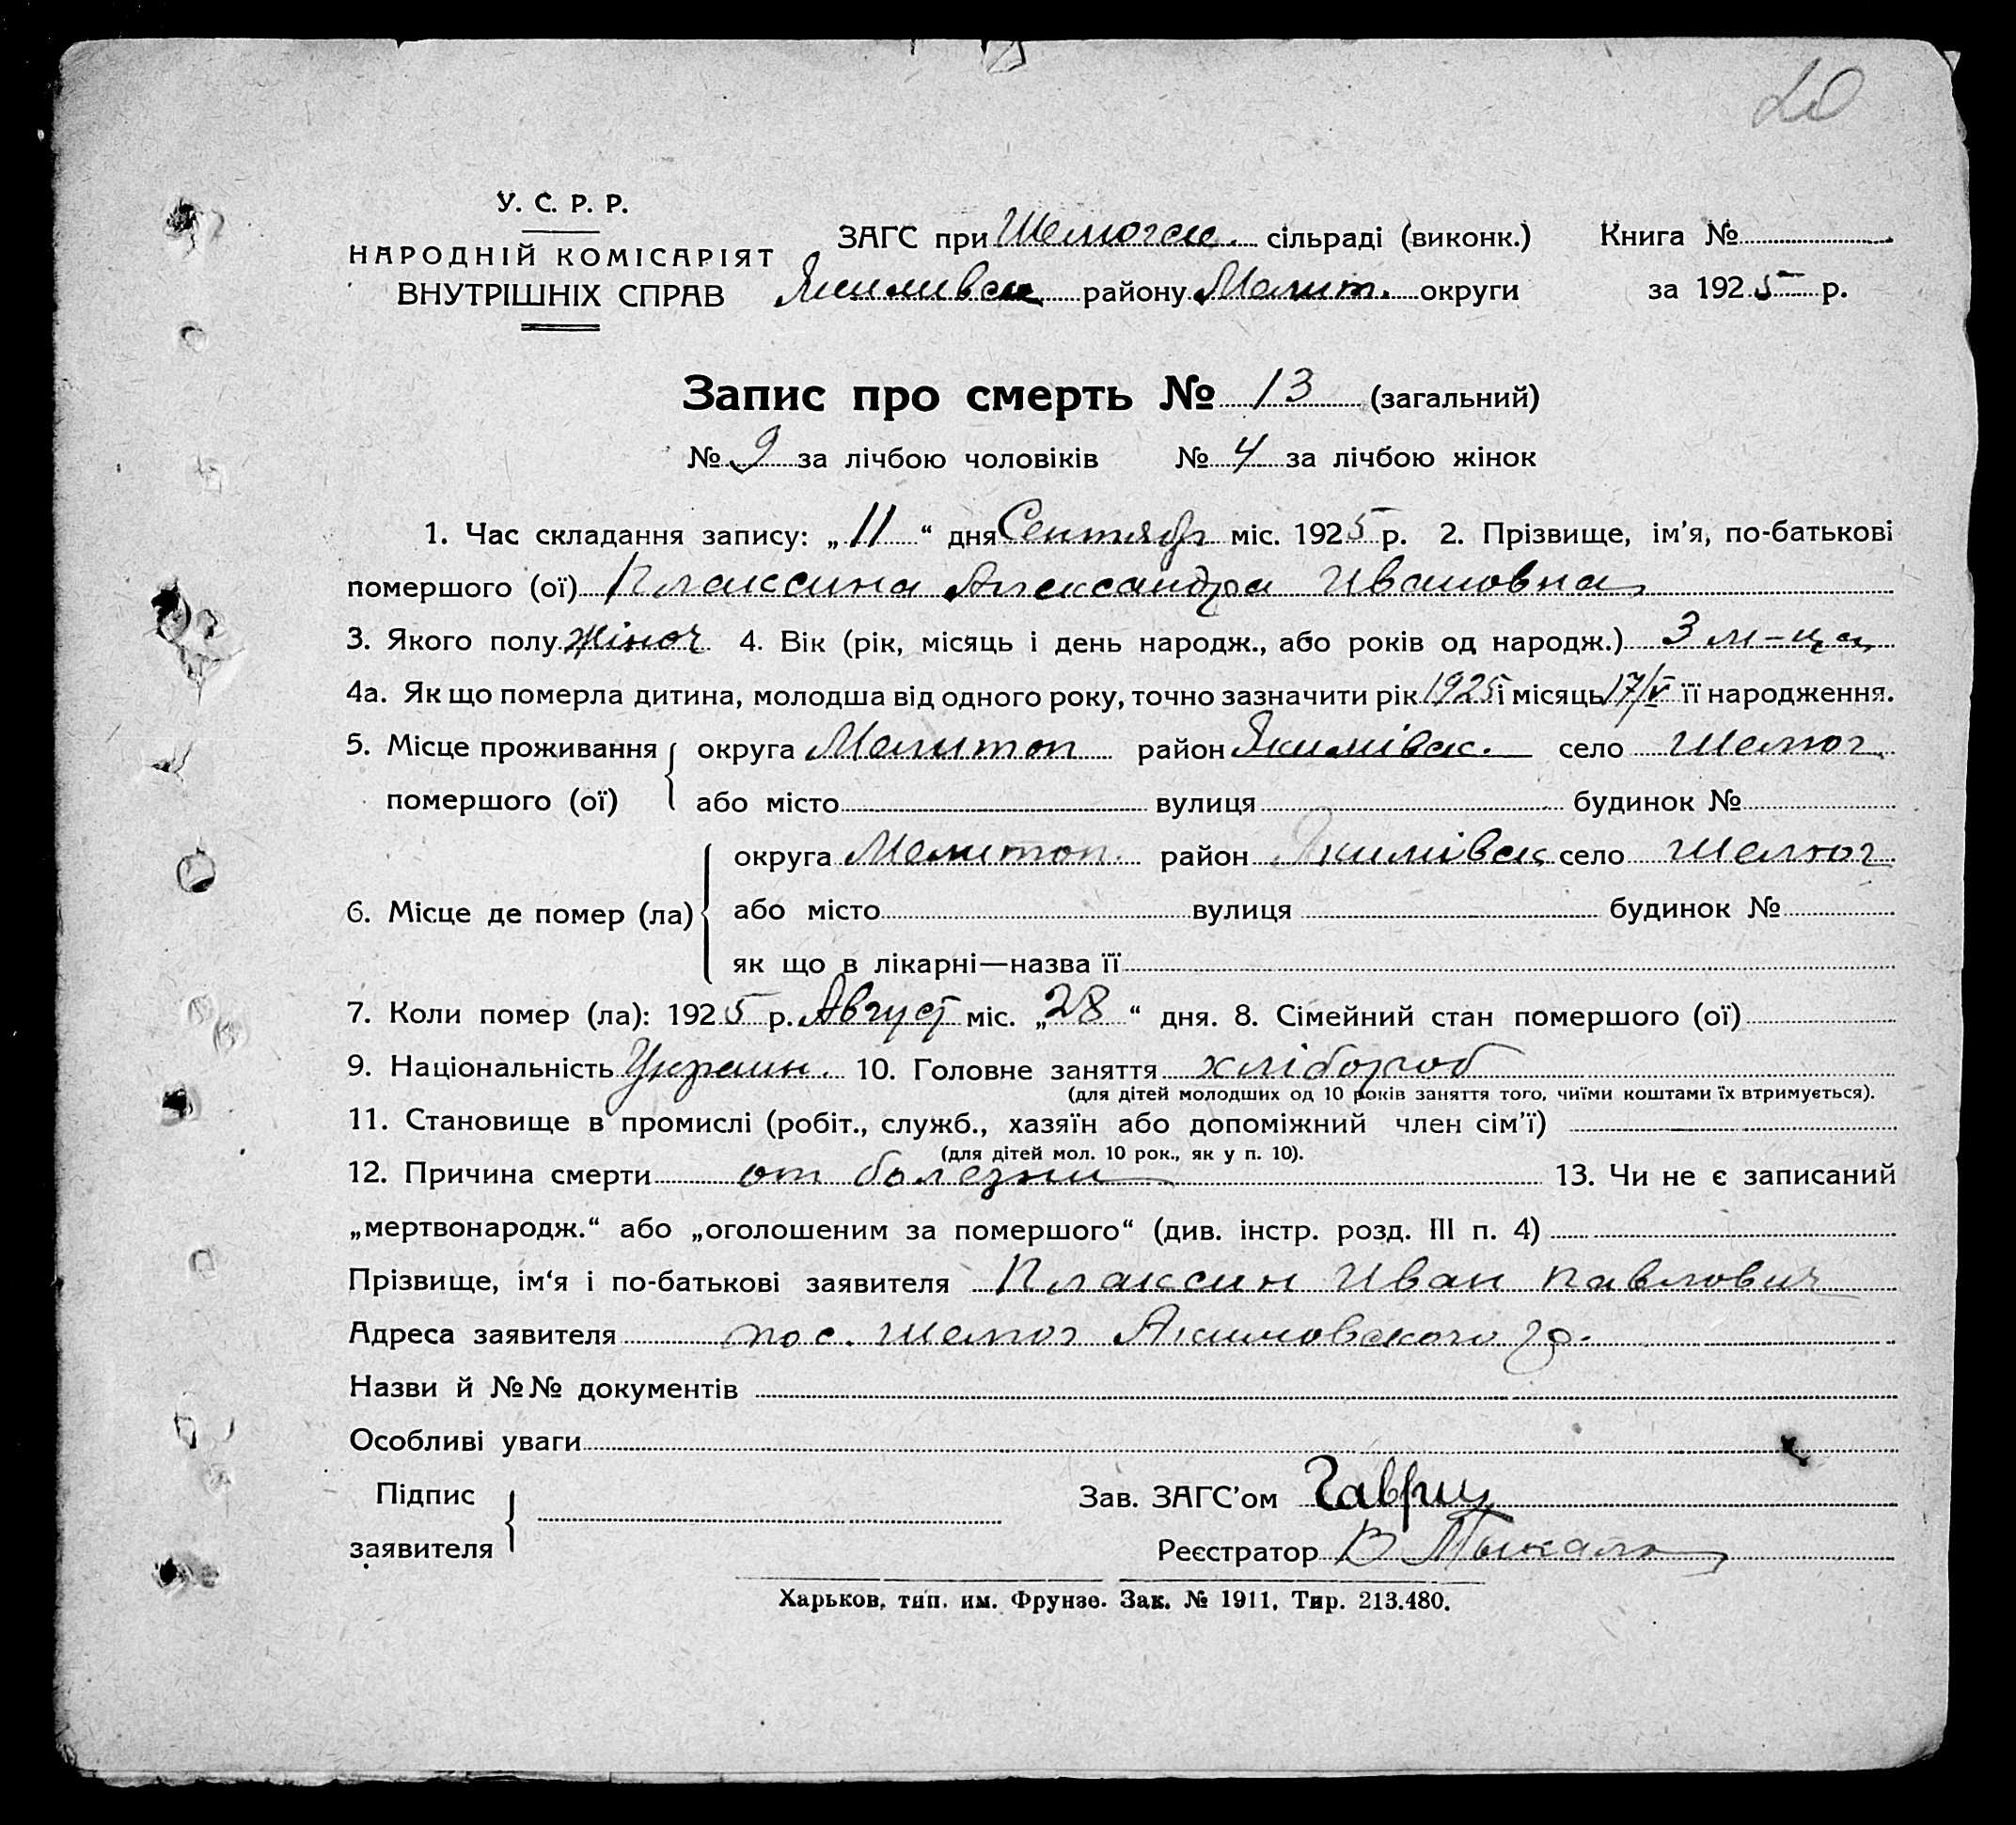 20
У. С. Р. Р.
НАРОДНІЙ КОМІСАРІЯТ
ВНУТРІШНІХ СПРАВ
ЗАГС при Шелюгск. сільраді (виконк.) Книга №
Якимивск району Мелит. округи за 1925 р.
Запис про смерть № 13 (загальний)
№ 9 за лічбою чоловіків № 4 за лічбою жінок
1. Час складання запису: „11“ дня Сентябр міс. 1925 р. 2. Прізвище, ім’я, по-батькові
помершого (ої) Плаксина Александра Ивановна
3. Якого полу жіноч 4. Вік (рік, місяць і день народж., або років од народж.) 3 м-ца
4а. Як що померла дитина, молодша від одного року, точно зазначити рік 1925 і місяць 17/V її народження.
5. Місце проживання округа Мелитоп район Якимівск. село Шелюг
помершого (ої) або місто вулиця будинок №
округа Мелитоп. район Якимівск село Шелюг
6. Місце де помер (ла) або місто вулиця будинок №
як що в лікарні—назва її
7. Коли помер (ла): 1925 р. Август міс. „28“ дня. 8. Сімейний стан помершого (ої)
9. Національність Украин. 10. Головне заняття хлібороб
(для дітей молодших од 10 років заняття того, чиїми коштами їх втримується).
11. Становище в промислі (робіт., служб., хазяїн або допоміжний член сім’ї)
(для дітей мол. 10 рок., як у п. 10).
12. Причина смерти от болезни 13. Чи не є записаний
„мертвонародж.“ або „оголошеним за помершого“ (див. інстр. розд. III п. 4)
Прізвище, ім‘я і по-батькові заявителя Плаксин Иван Павлович
Адреса заявителя пос. Шелюг Акимовского р.
Назви й №№ документів
Особливі уваги
Підпис
заявителя
Зав. ЗАГС’ом
Реєстратор В
Харьков, тип. им. Фрунзе. Зак. № 1911. Тир. 213.480.